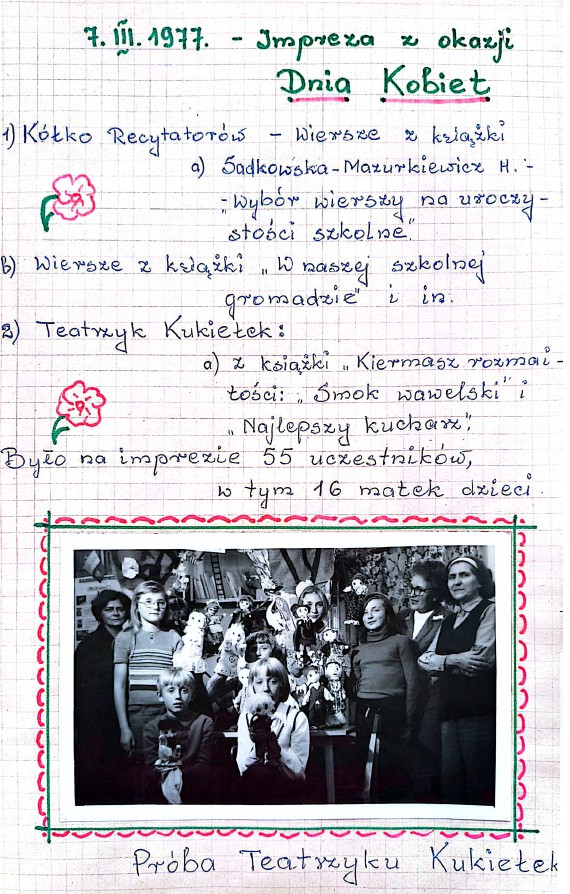 7. III. 1977. - Impreza z okazji
Dnia Kobiet
1) Kółko Recytatorów - wiersze z książki
a) Sadkowska-Mazurkiewicz H. -
- "wybór wierszy na uroczy-
stości szkolne."
b) Wiersze z książki „W naszej szkolnej
gromadzie" i in.
2) Teatrzyk Kukiełek:
a) z książki „Kiermasz rozmai-
tości: „Smok wawelski" i
„Najlepszy kucharz".
Było na imprezie 55 uczestników,
w tym 16 matek dzieci.
Próba Teatrzyku Kukiełek